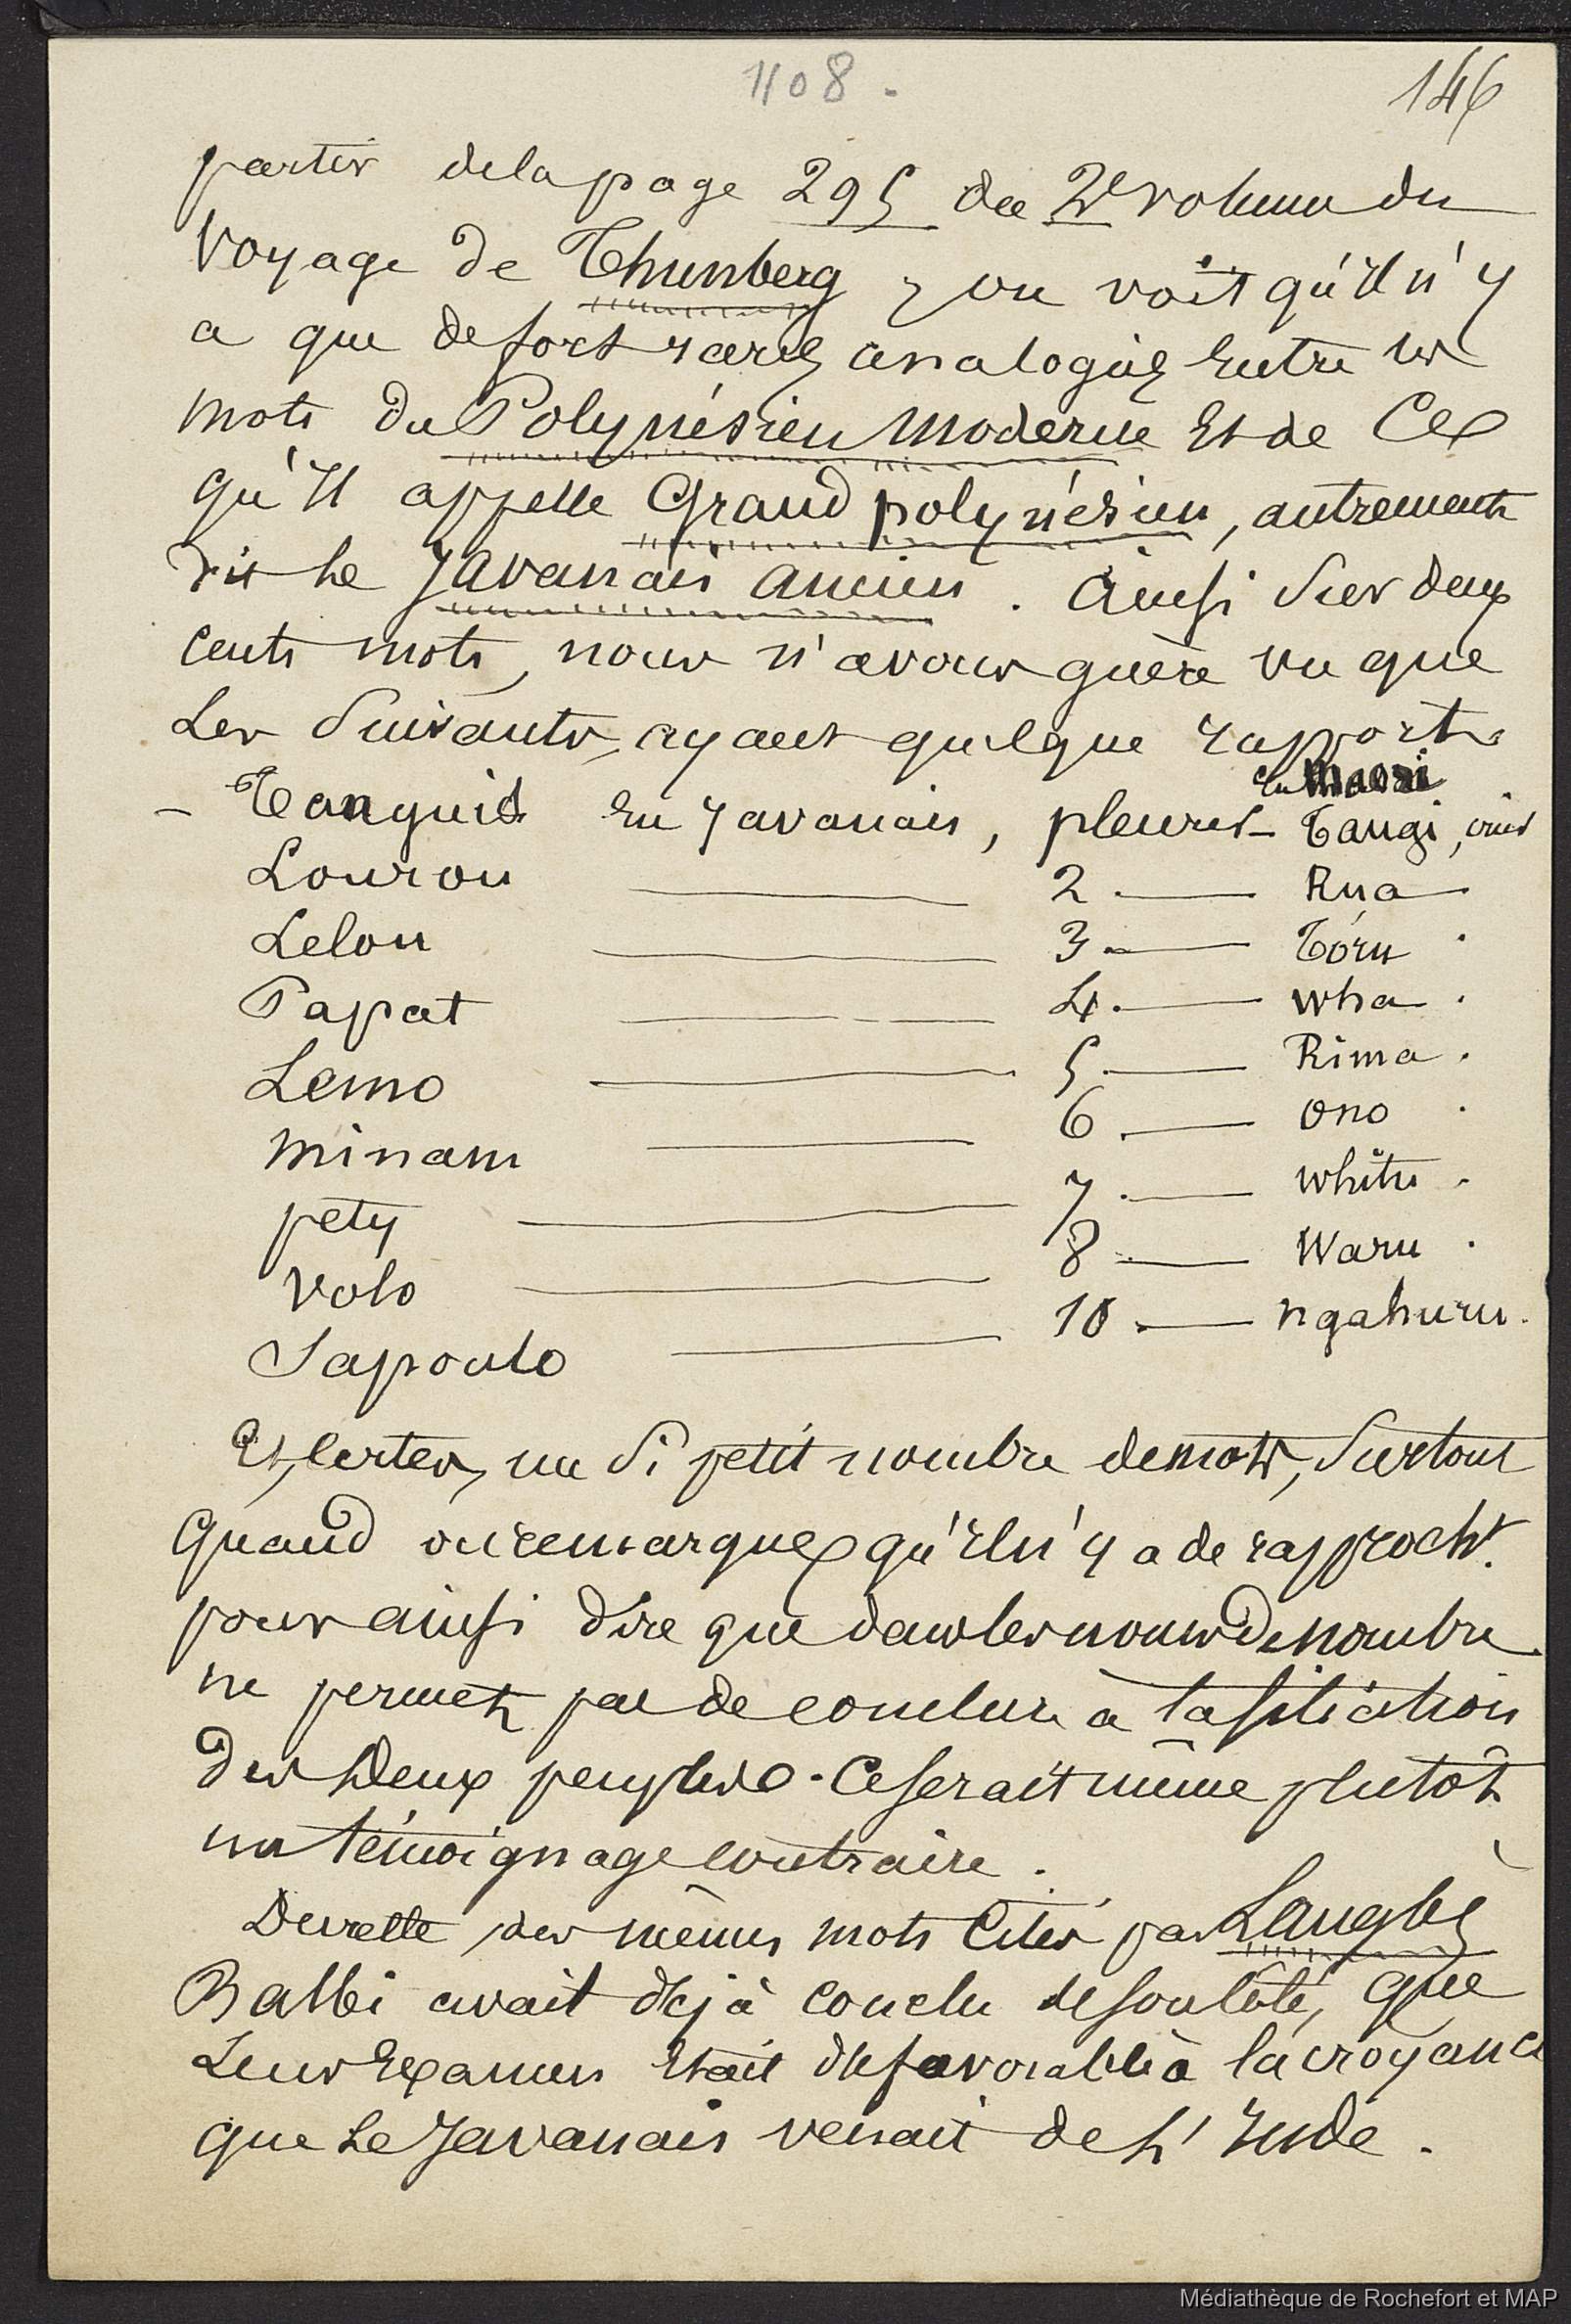 1108.
146
partir de la page 295 du 2e volume du
Voyage de Thunberg, on voit qu'il n'y
a que de fort rares analogies entre les
mots du Polynésien moderne et de ce
qu'il appelle Grand polynésien, autrement
dit le Javanais ancien. Ainsi sur deux
cents mots, nous n'avons guère vu que
les suivants, ayant quelque rapport.
en Maori
- Tanguis en Javanais, pleurer - Tangi, cri
Lourou 2. Rua
Lelou 3. Tóru.
Papat 4. wha.
Lemo 5. Rima.
minam 6. ono.
pety 7. whitu.
Volo 8. Waru.
Sapoulo 10. ngahuru.
Et, certes, un si petit nombre de mots, surtout
quand on remarque qu'il n'y a de rapprocht.
pour ainsi dire que dans les noms de nombre
ne permet pas de conclure à la filiation
des deux peuples. Ce serait même plutôt
un témoignage contraire.
De cette des mêmes mots cités par Langlès
Balbi avait déjà conclu de son côté, que
leur examen était défavorable à la croyance
que le Javanais venait de l'Inde.
Médiathèque de Rochefort et MAP